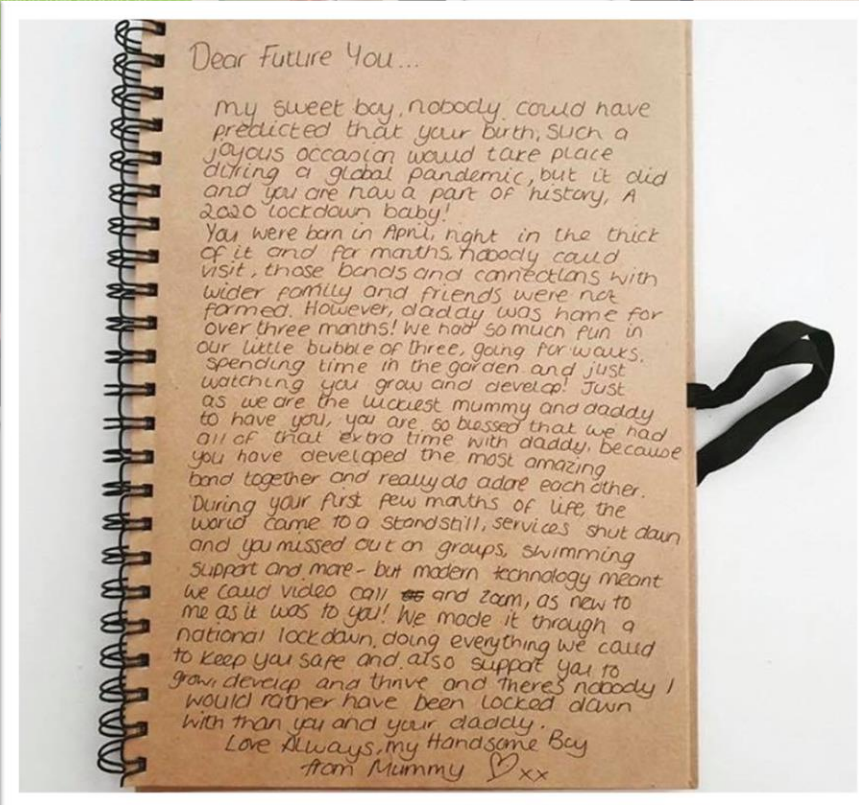 Dear Future You...
my sweet boy, nobody could have
predicted that your birth, such a
joyous occasion would take place
during a global pandemic, but it did
and you are now a part of history, A
2020 lockdown baby!
You were born in April, right in the thick
of it and for months, nobody could
visit, those bonds and connections with
wider family and friends were not
formed. However, daddy was home for
over three months! We had so much fun in
our little bubble of three, going for walks,
spending time in the garden and just
watching you grow and develop! Just
as we are the luckiest mummy and daddy
to have you, you are so blessed that we had
all of that extra time with daddy, because
you have developed the most amazing
bond together and really do adore each other.
During your first few months of life, the
world came to a standstill, services shut down
and you missed out on groups, swimming
support and more - but modern technology meant
we could video call and zoom, as new to
me as it was to you! We made it through a
national lockdown, doing everything we could
to keep you safe and also support you to
grow, develop and thrive and theres nobody I
would rather have been locked down
with than you and your daddy.
Love Always, my Handsome Boy
from Mummy ♡xx